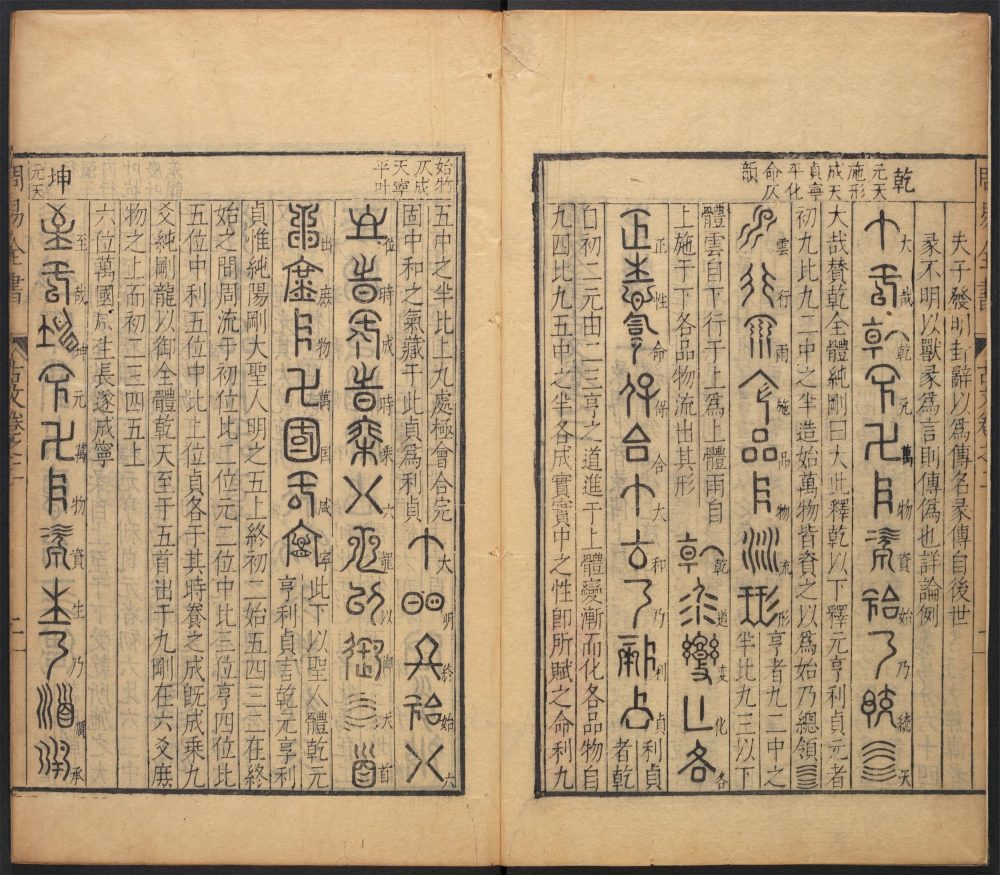 夫子發明卦辭以為傳名彖傳自後世
彖不明以獸彖為言則傳偽也詳論例
乾
元天
施形
成天
貞寧
平化
命仄
韻
大哉乾元萬物資始乃統天
大哉贊乾全體純剛曰大此釋乾以下釋元亨利貞元者
初九比九二中之半造始萬物皆資之以為始乃總領
雲行雨施品物流形
亨者九二中之
半比九三以下
體雲自下行于上為上體雨自
上施于下各品物流出其形
乾道变化各
正性命保合大和乃利貞
利貞
者乾
自初二元由二三亨之道進于上體變漸而化各品物自
九四比九五中之半各成實實中之性即所賦之命利九
始物
仄成
天寧
平叶
五中之半比上九處極會合完
固中和之氣藏于此貞為利貞
大明終始六
位時成時乘六龍以御天首
出庶物萬国咸寧
此下以聖人體乾元
亨利貞言乾元亨利
貞惟純陽剛大聖人明之五上終初二始五四三二在終
始之間周流于初位比二位元二位中比三位亨四位比
五位中利五位中比上位貞各于其時養之成既成乘九
爻純剛龍以御全體乾天至于五首出于九剛在六爻庶
物之上而初二三四五上
六位萬國成生長遂咸寧
坤
元天
至哉坤元萬物資生乃順承
周易全書
二